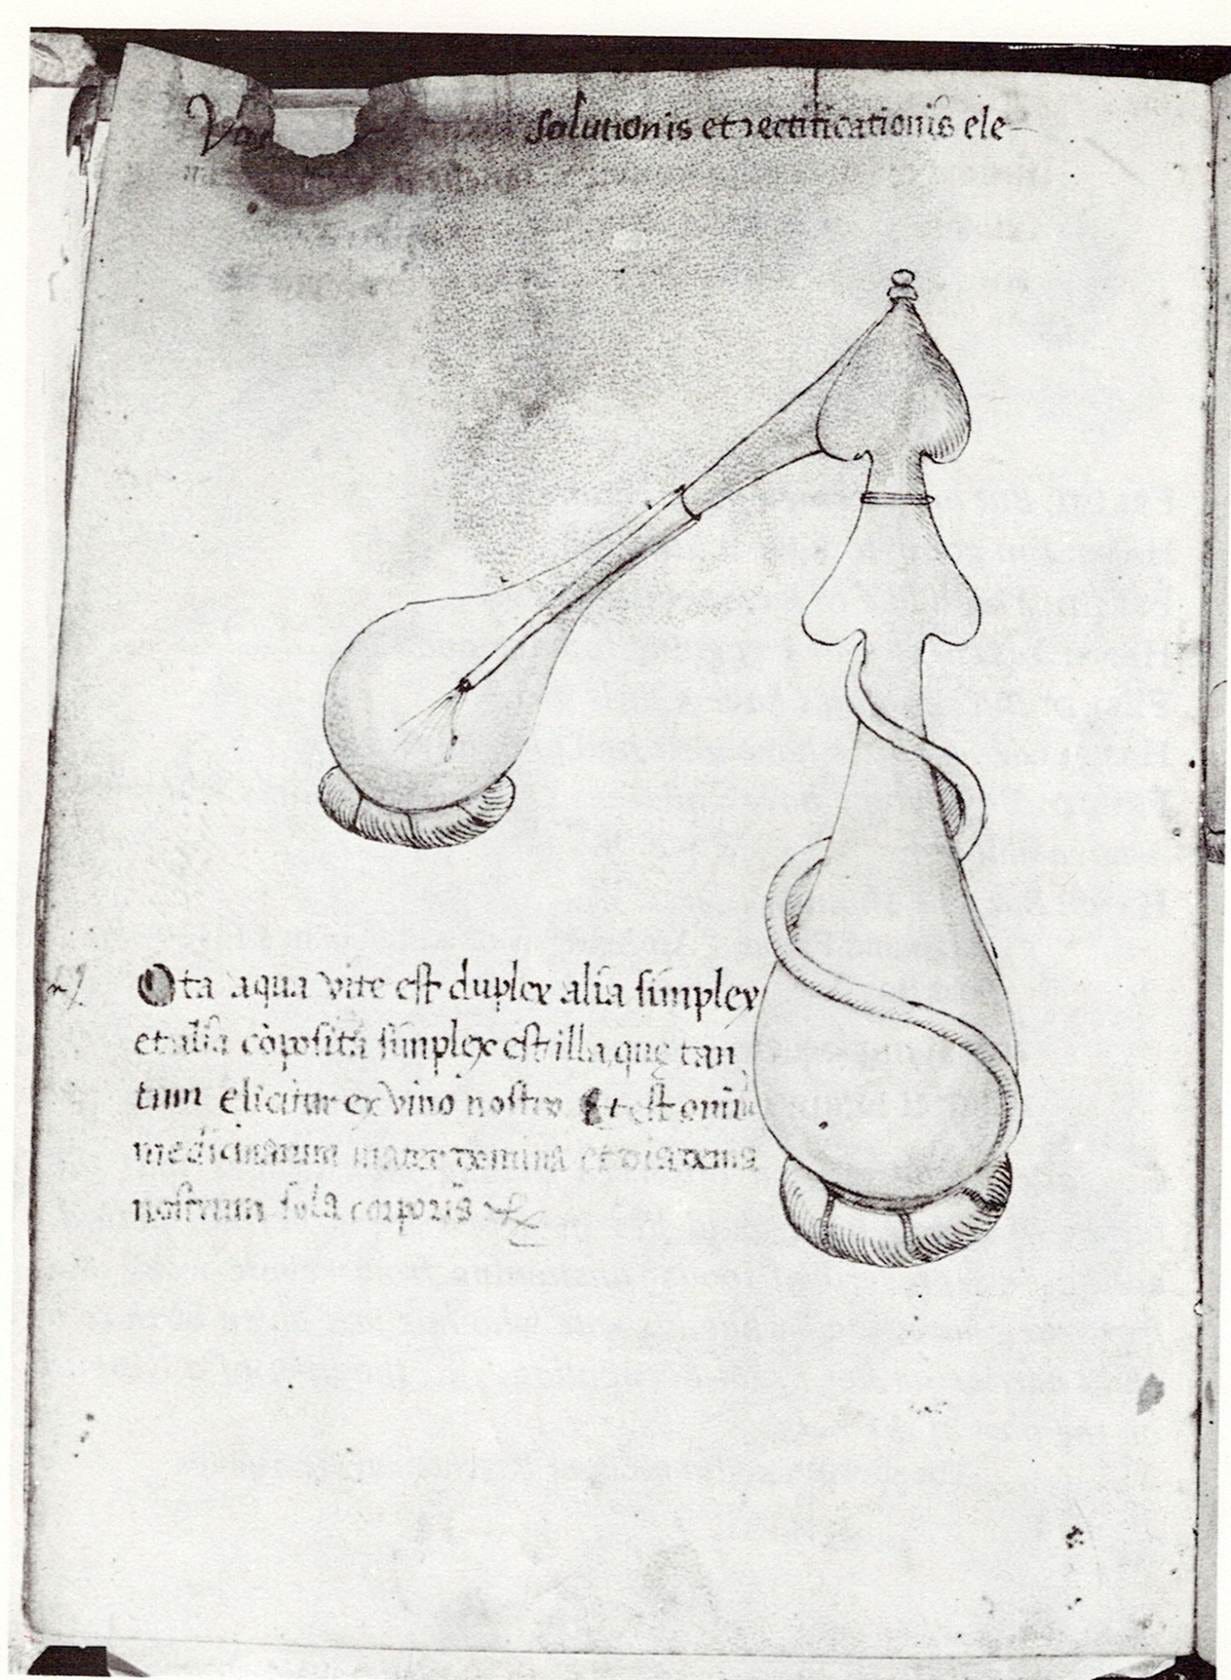 Vas solutionis et rectificationis ele-
Ota aqua vite est duplex alia simplex
et alia cõposita simplex est illa, que tan
tum elicitur ex vino nostro Et est oniũ
medicinarum mater domina et
nostrum sola corporis